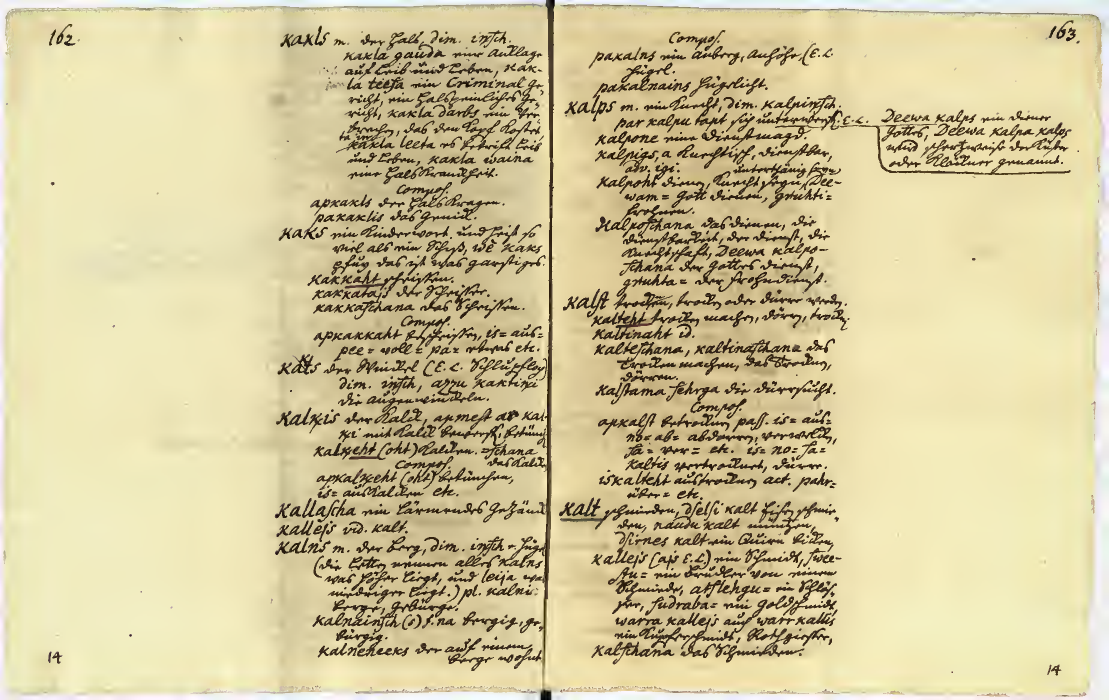 162.
KAKLS m. der Hals, dim. insch.
kakla gauda eine Auflage
auf Leib und Leben, kak-
la teesa ein Criminal Ge-
richt, ein Halspeinliches Ge-
richt, kakla darbs ein Ver-
brechen, das den Kopf kostet
kakla leeta es betrift Leib
und Leben, kakla waina
eine Halskrankheit.
Compos.
apkakls der Halskragen.
pakaklis das Genick.
KAKS ein Kinderwort und heist so
viel als ein Schiß, wē kaks
pfuy das ist was garstiges.
kakkaht scheissen.
kakkatajs der Scheisser.
kakkaschana das Scheissen.
Compos.
apkakkaht bescheissen, is= aus=
pee= voll= pa= etwas etc.
der Winkel (E. L. Schlupfloch)
dim. insch, azzu kaktini
die Augenwinkeln.
KALKIS der Kalk, apmest ar kal-
ki mit Kalk bewerfen, betünch
kalkeht (oht) kalken. =schana
das Kalken
Compos.
apkalkeht (oht) betünchen,
is= auskalken etc.
KALLASCHA ein lärmendes Gezänk
KALLEJS vid. kalt.
KALNS m. der Berg, dim. insch. Hügel
(die Letten nennen alles kalns
was höher liegt, und leija was
niedriger liegt.) pl. kalni
Berge, Gebürge.
kalnainsch (s) f. na bergig, ge-
bürgig.
kalneneeks der auf einem
Berge wohnt
14
163.
Compos.
pakalns ein Auberg, Anhöhe, (E. L.
Hügel.
pakalnains hügelicht.
KALPS m. ein Knecht, dim. kalpinsch.
par kalpu tapt sich unterwerfen, E. L.
Deewa kalps ein Diener
Gottes, Deewa kalpa kalps
wird scherzweise der Küster
oder Glöckner genannt.
kalpone eine Dienstmagd.
kalpigs, a knechtisch, dienstbar,
adv. igi. unterthänig
kalpoht dienen, Knecht seyn, Dee-
wam= Gott dienen, gruhti=
frohnen.
kalposchana das dienen, die
dienstbarkeit, der dienst, die
Knechtschaft, Deewa kalpo-
schana der Gottes dienst,
gruhta= der frohndienst.
KALST trocknen, trocken oder dürre werden.
kalteht trocken machen, dörren, trocknen.
kaltinaht id.
kalteschana, kaltinaschana das
trocken machen, das trocknen,
dörren.
kalstama sehrga die dürrsucht.
Compos.
apkalst betrocknen pass. is= aus=
no= ab= abdorren, verwelken,
sa= ver= etc. is= no= sa=
kaltis vertrocknet, dürre.
iskalteht austrocknen act. pahr=
über= etc.
KALT schmieden, dselsi kalt Eisen schmie-
den, naudu kalt müntzen,
dsirnes kalt ein Quirn bicken,
kallejs (ajs E. L.) ein Schmidt, swee-
Schmiede, atslehgu= ein Schlös-
ser, sudraba= ein Goldschmidt,
warra kallejs auch warrkallis
ein Kupferschmidt, Rothgiesser,
kalschana das Schmieden.
14